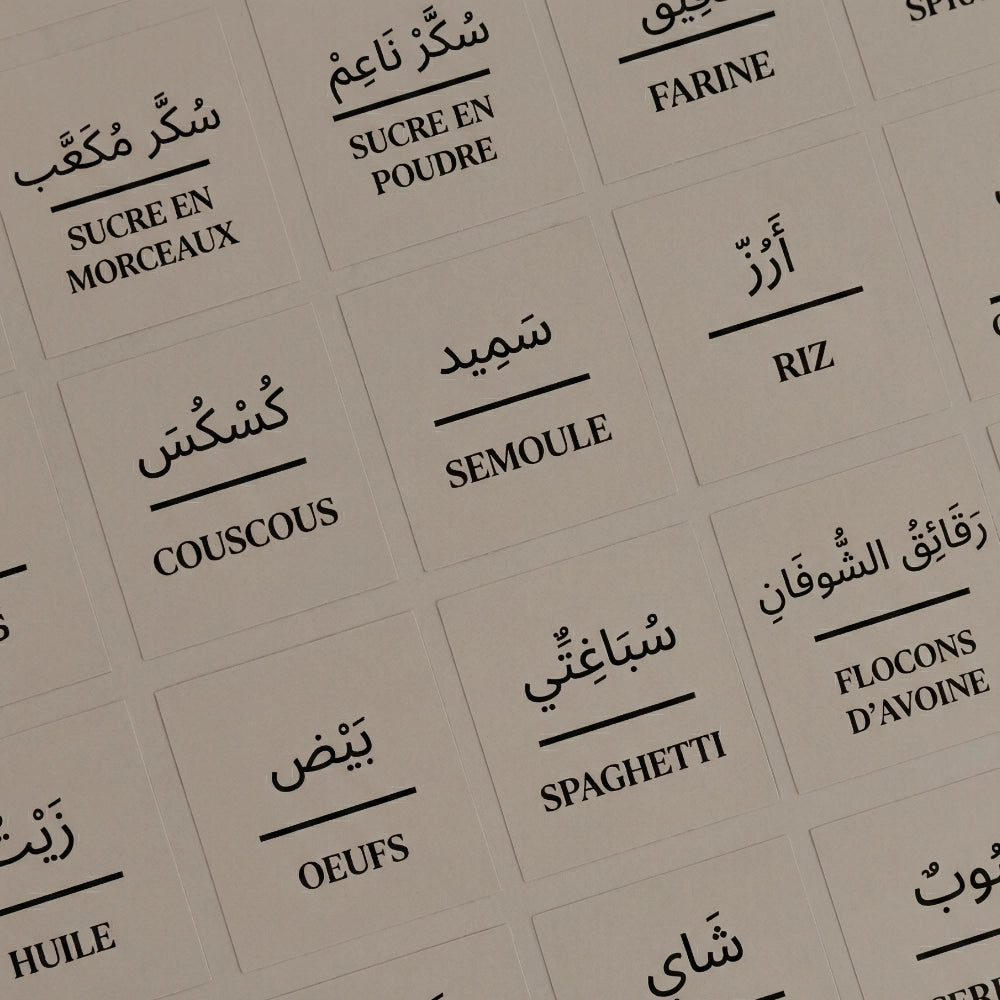 سُكَّر مُكَعَّب
SUCRE EN
MORCEAUX
سُكَّرْ نَاعِمْ
SUCRE EN
POUDRE
FARINE
كُسْكُسَ
COUSCOUS
سَمِيد
SEMOULE
أَرُزّ
RIZ
زَيْتُ
HUILE
بَيْض
OEUFS
سُبَاغِتِّي
SPAGHETTI
رَقَائِقُ الشُّوفَانِ
FLOCONS
D’AVOINE
شَاي